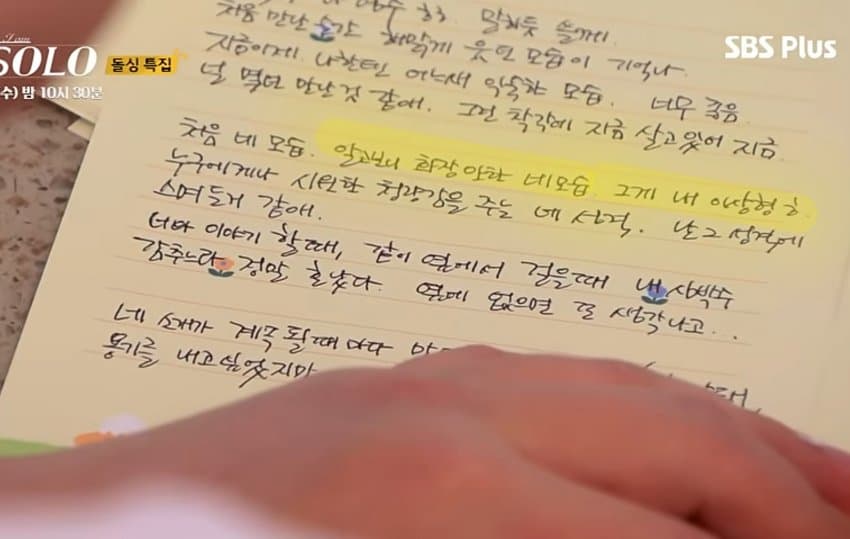 SOLO 돌싱 특집
(수) 밤 10시 30분
SBS Plus
말하듯 쓸게.
처음 만난 순간 해맑게 웃던 모습이 기억나
지금이게 나한테 어느새 익숙한 모습. 너무 좋음.
널 몇년 만난것 같애. 그런 착각에 지금 살고있어 지금
처음 네 모습. 알고보니 화장 안한 네모습. 그게 내 이상형 ㅎ.
누구에게나 시원한 청량감을 주는 네 성격. 난 그 성격에
스며든거 같애.
너와 이야기 할때, 같이 옆에서 걸을때 내 심박수
감추느라 정말 혼났다. 옆에 없으면 또 생각나고..
네 소개가 계속 될때 마다
용기를 내고싶었지만